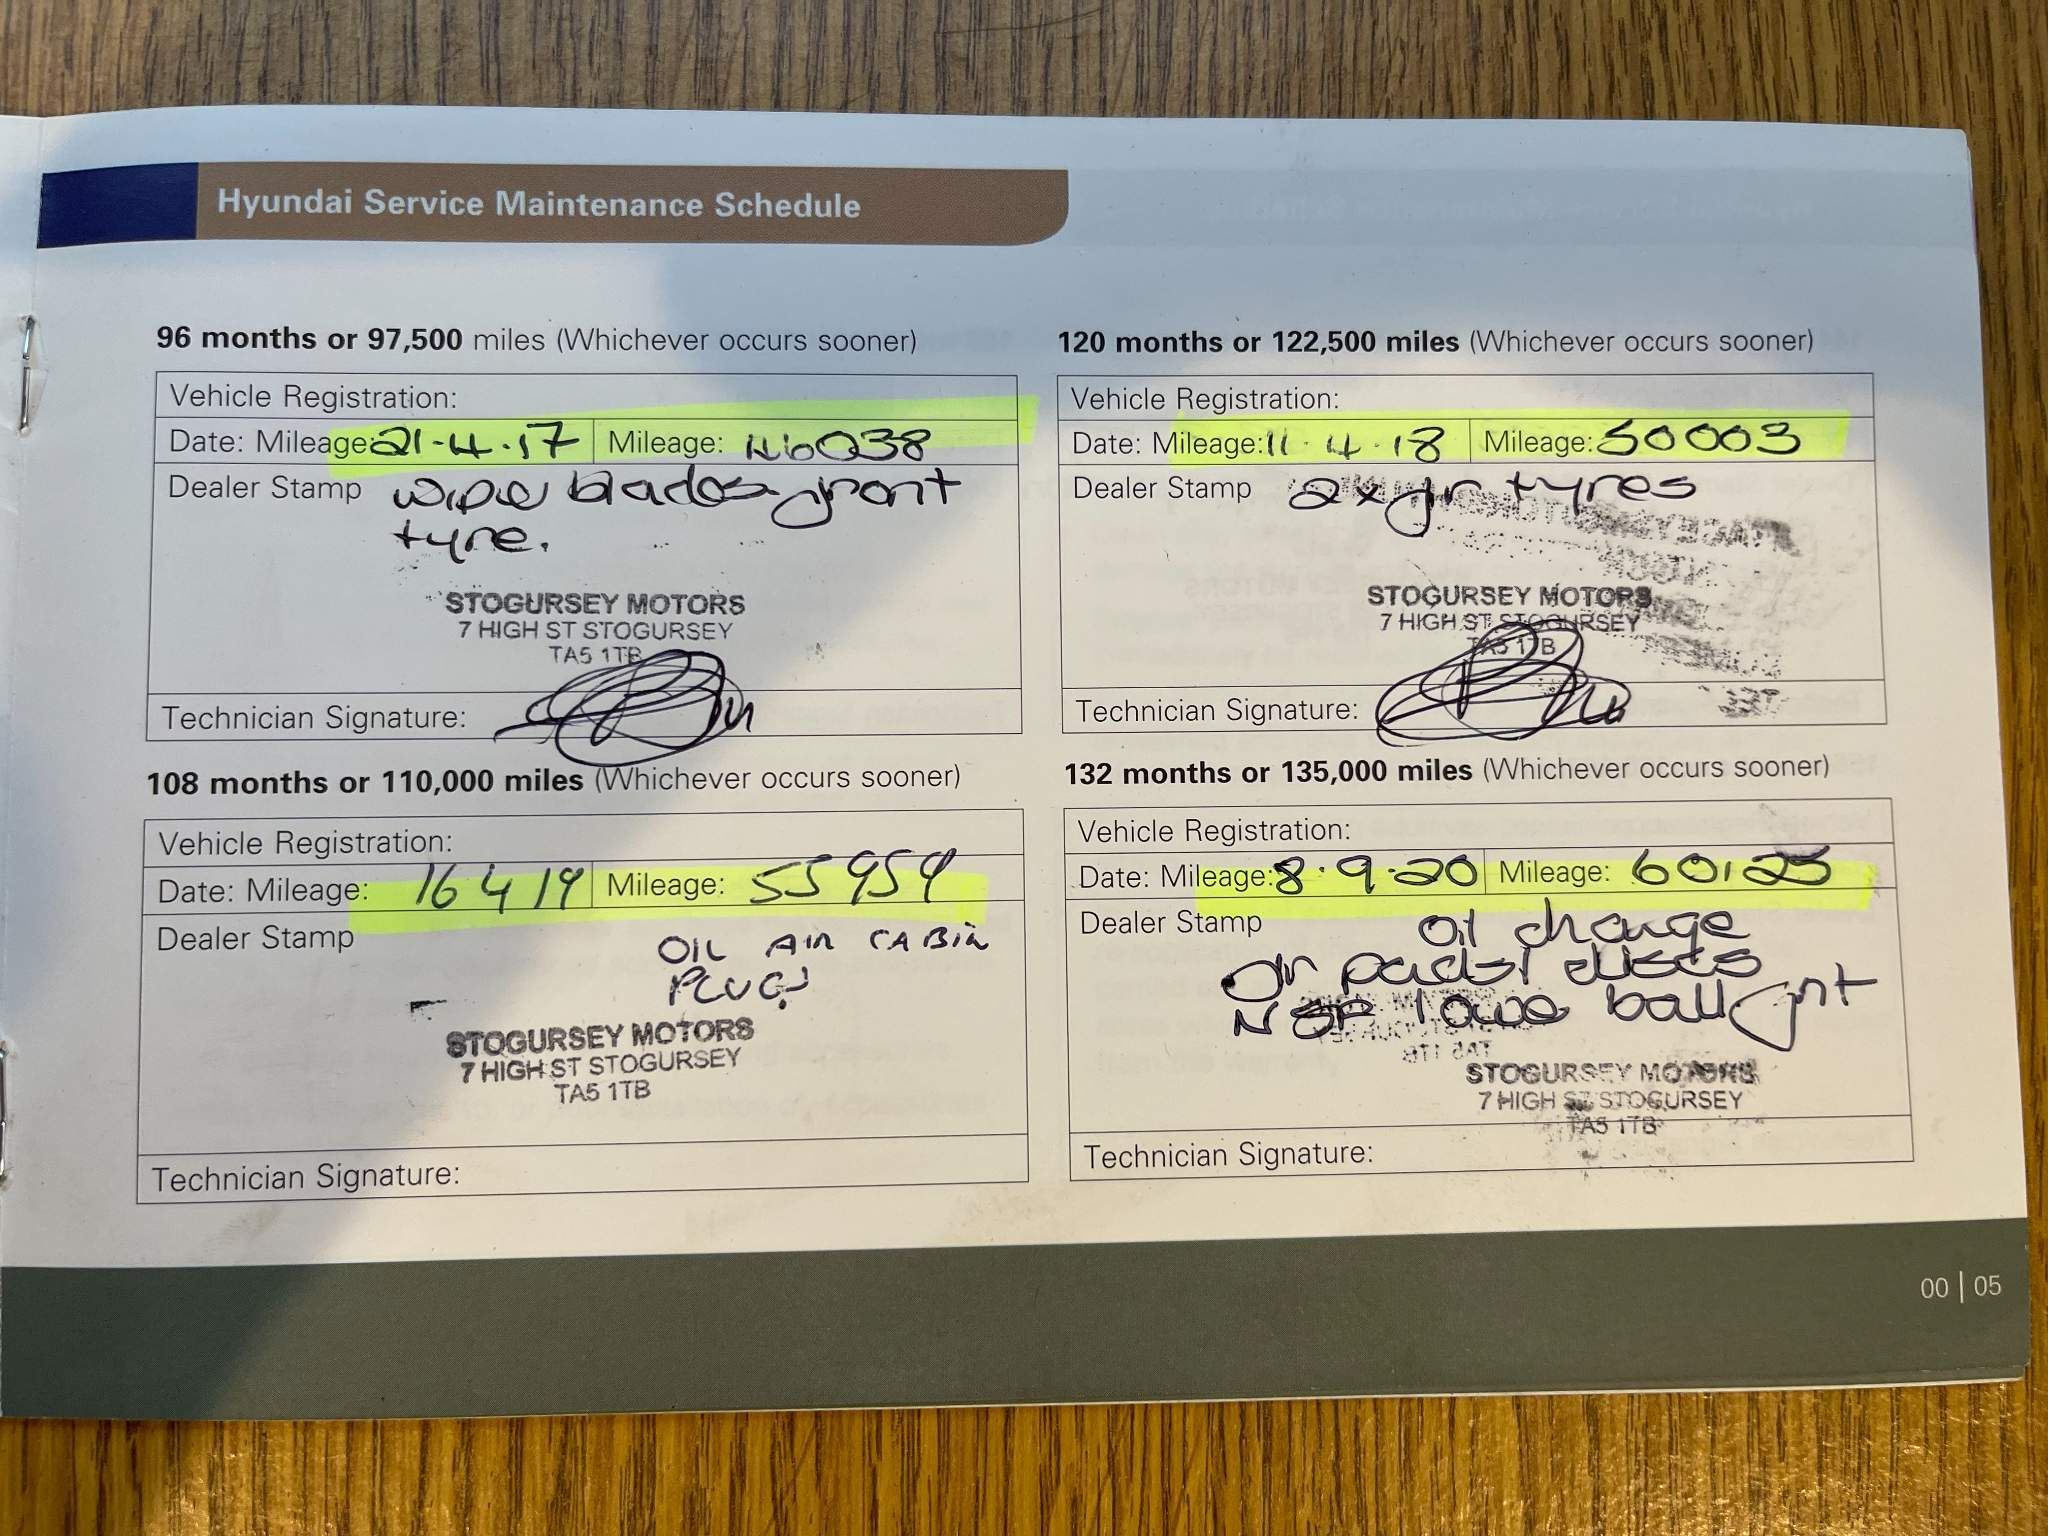 Hyundai Service Maintenance Schedule
96 months or 97,500 miles (Whichever occurs sooner)
Vehicle Registration:
Date: Mileage: 21-4.17 Mileage: 46038
Dealer Stamp wiper blades front
tyre.
STOGURSEY MOTORS
7 HIGH ST STOGURSEY
TA5 1TB
Technician Signature:
108 months or 110,000 miles (Whichever occurs sooner)
Vehicle Registration:
Date: Mileage: 16 4 19 Mileage: 55959
Dealer Stamp OIL AIR CABIN
PLUGS
STOGURSEY MOTORS
7 HIGH ST STOGURSEY
TA5 1TB
Technician Signature:
120 months or 122,500 miles (Whichever occurs sooner)
Vehicle Registration:
Date: Mileage: 11.4.18 Mileage: 50003
Dealer Stamp 2x fr tyres
STOGURSEY MOTORS
7 HIGH ST STOGURSEY
TA5 1TB
Technician Signature:
132 months or 135,000 miles (Whichever occurs sooner)
Vehicle Registration:
Date: Mileage: 8.9.20 Mileage: 60125
Dealer Stamp oil change
pads discs
NSF lower ball jnt
STOGURSEY MOTORS
7 HIGH ST STOGURSEY
TA5 1TB
Technician Signature:
00 | 05